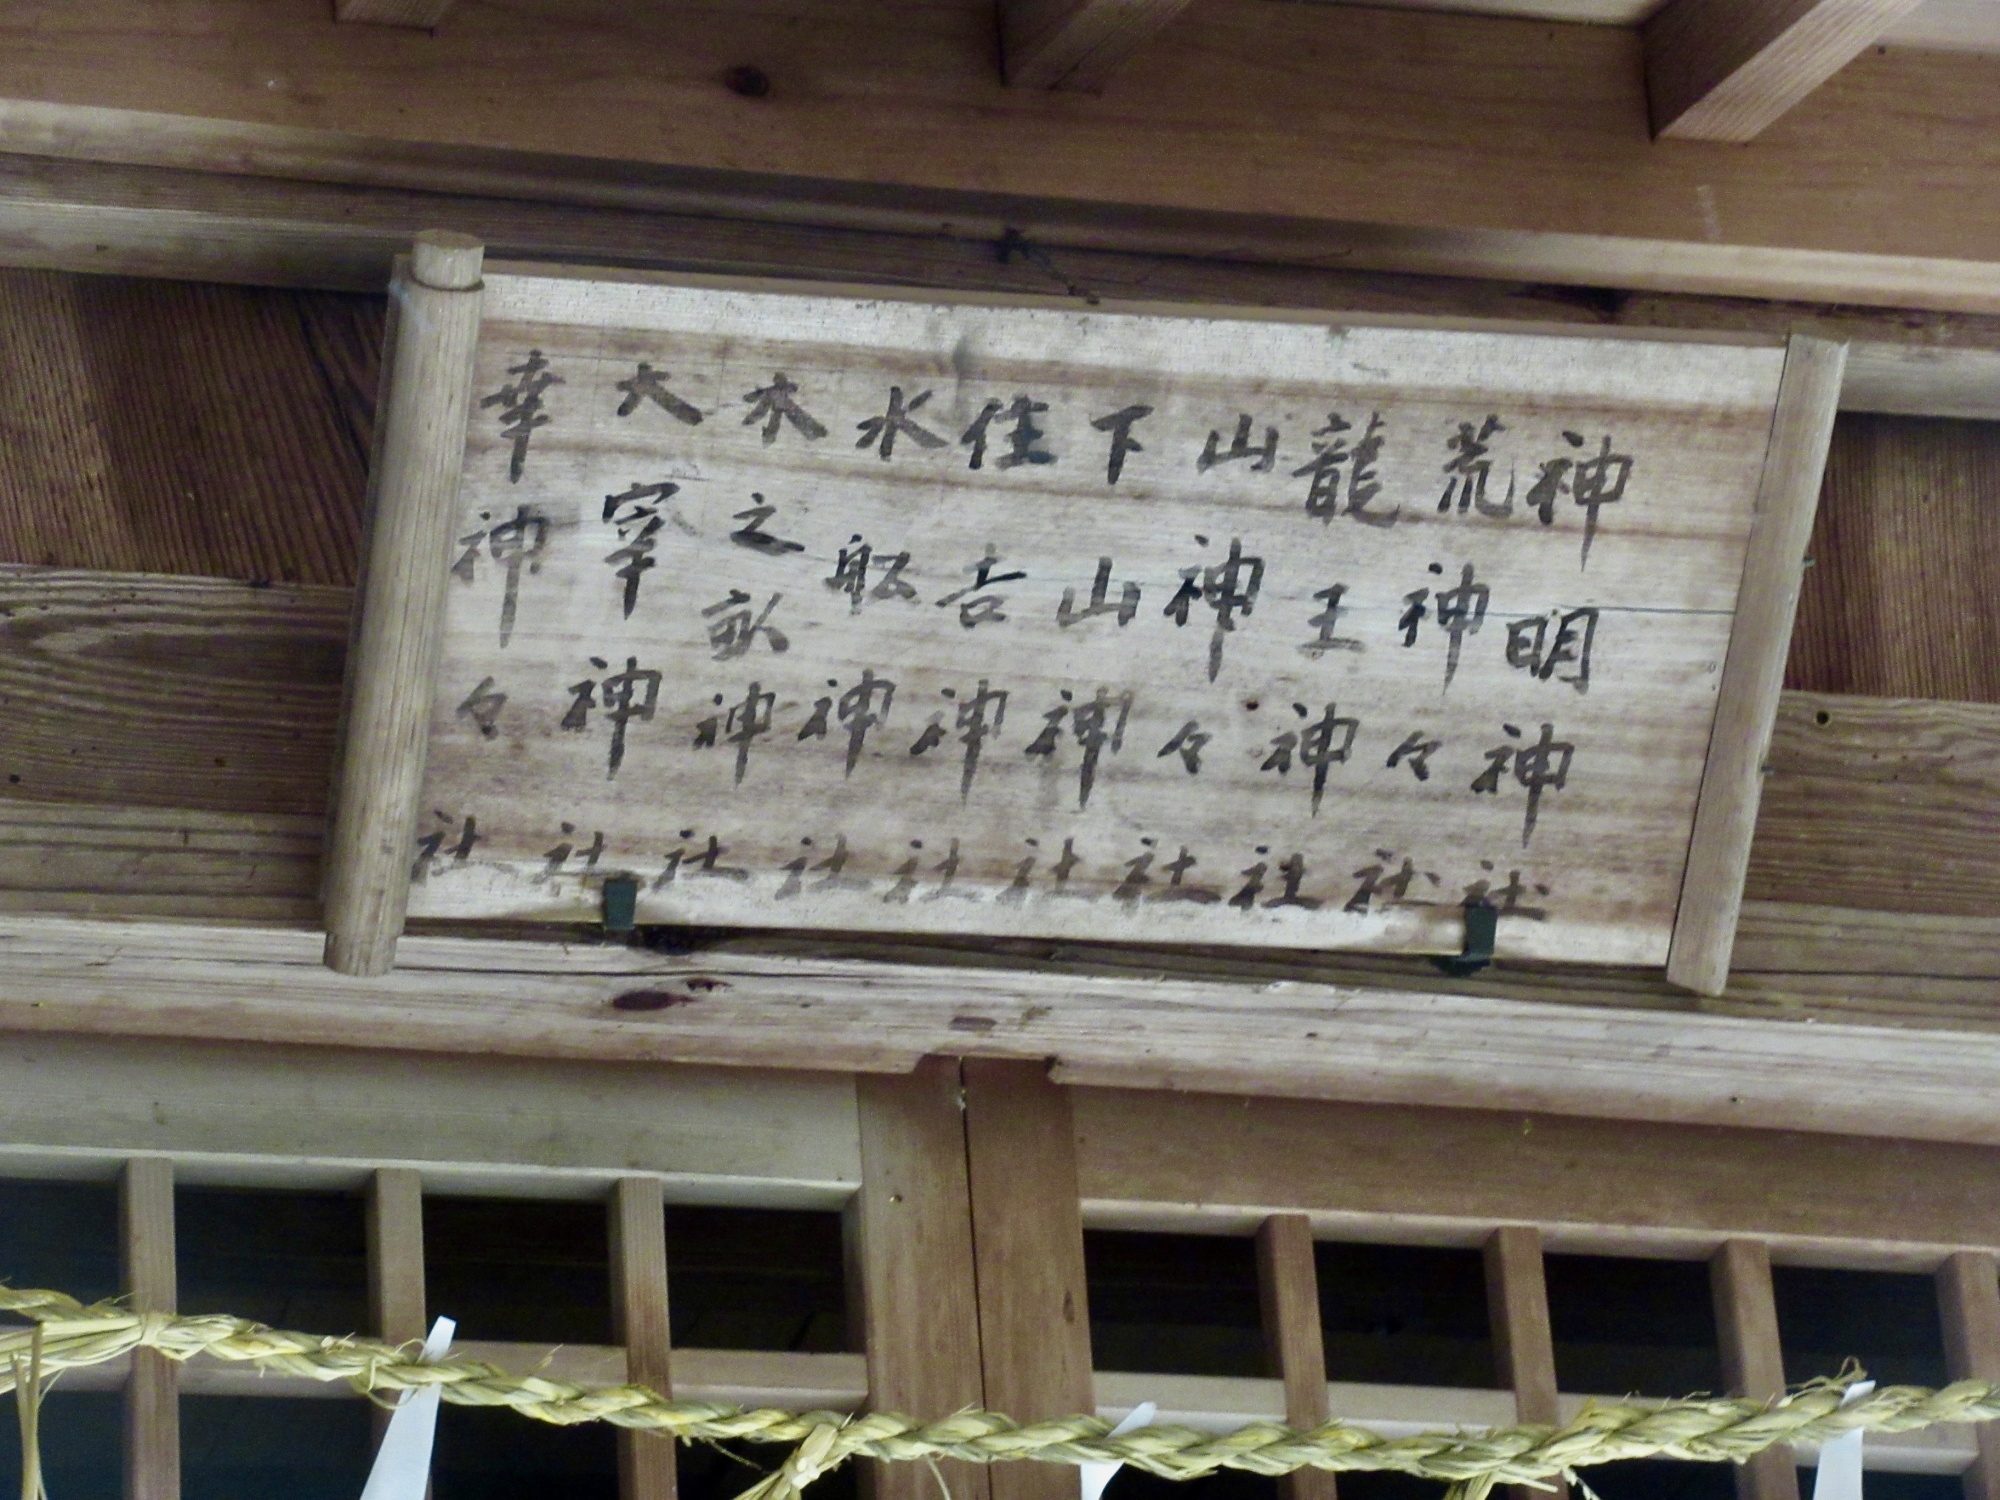 神明神社
荒神々社
龍王神社
山神々社
下山神社
住吉神社
水舩神社
木之畝神社
大宰神社
幸神々社